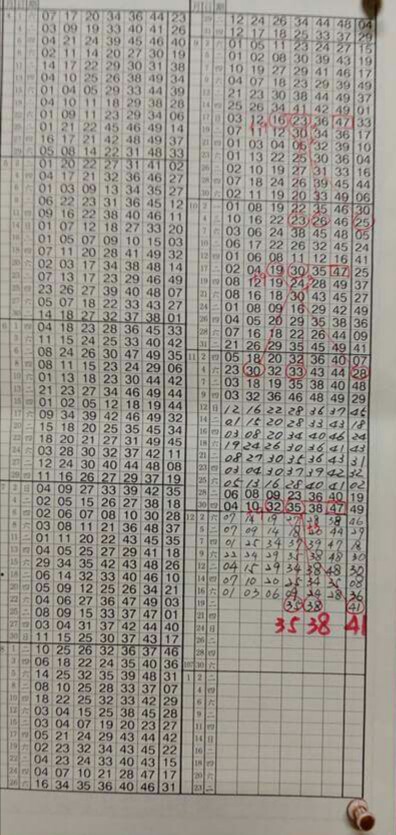 07 17 20 34 37 44 23
03 09 19 33 40 41 26
04 21 24 39 45 46 40
02 11 14 20 27 30 19
14 17 22 29 30 31 38
04 10 25 26 38 49 34
01 04 05 29 33 44 39
04 10 11 18 29 38 28
01 09 11 23 29 34 06
01 21 22 45 46 49 14
16 17 21 42 48 49 37
05 08 14 22 31 48 33
01 20 22 27 31 41 02
04 17 21 32 36 46 27
01 03 09 13 34 35 27
06 22 23 31 36 45 12
09 16 22 38 40 46 11
01 07 12 18 27 33 20
01 05 07 09 10 15 03
07 11 20 28 41 49 32
02 03 17 34 38 48 14
07 13 17 23 29 46 49
23 26 27 39 40 48 07
05 07 18 22 33 43 27
14 18 27 32 37 38 01
04 18 23 28 36 45 33
11 15 24 25 33 40 42
08 24 26 30 47 49 35
08 11 15 23 24 29 06
01 13 18 23 30 44 42
21 23 27 34 46 49 44
01 02 05 12 18 19 44
09 34 39 42 46 49 32
15 18 20 25 35 45 34
18 20 21 27 31 49 45
03 28 30 32 37 42 11
12 24 30 40 44 48 08
11 16 26 27 29 37 19
04 09 27 33 39 42 35
02 05 15 26 27 38 18
02 06 07 08 10 30 28
03 08 11 21 36 48 37
01 11 20 22 43 45 35
04 05 25 27 29 41 18
29 34 35 42 43 48 26
06 14 32 33 40 46 10
05 09 12 25 26 34 21
04 06 27 36 47 49 03
08 09 15 33 37 47 01
03 04 31 37 42 44 40
11 15 25 30 37 43 17
10 25 26 32 36 37 46
06 18 22 24 35 40 36
14 25 32 35 39 48 31
08 10 25 28 33 37 07
18 22 25 32 33 42 29
03 04 15 25 38 45 28
03 04 07 19 20 23 27
05 21 24 29 43 44 42
02 23 32 34 43 45 22
04 23 24 33 40 43 15
04 07 10 21 28 47 17
16 34 35 36 40 46 31
12 24 26 34 44 48 04
12 17 18 25 33 37 29
01 05 11 23 24 27 15
01 02 08 30 39 43 19
10 19 27 29 41 46 17
04 07 18 23 29 39 49
21 23 30 38 44 49 37
25 26 34 41 42 49 01
03 12 23 47 33
07 30 34 36 17
01 03 04 06 32 39 10
01 13 22 25 30 36 04
02 10 19 27 31 33 16
07 18 24 26 39 45 44
02 11 19 20 33 49 06
01 08 19 22 35 46 30
10 16 22 23 26 46 25
03 06 24 38 45 48 05
06 17 22 26 32 45 24
01 06 08 11 12 16 41
02 04 19 30 35 47 25
08 12 19 24 28 49 37
08 16 18 30 43 45 27
01 08 09 16 29 42 49
04 05 20 29 35 38 36
07 16 18 22 26 44 09
21 26 29 35 45 49 41
05 18 20 32 36 40 07
23 30 32 33 43 44 28
03 18 19 35 38 40 48
09 32 36 46 48 49 29
12 16 22 28 36 37 46
01 15 20 28 33 43 18
03 08 20 34 40 46 24
19 24 26 30 36 41 43
08 27 30 35 36 43 31
03 04 30 37 39 42 32
05 13 16 28 40 41 02
06 08 09 23 36 40 19
04 32 35 38 47 49
01 25 34 39 47 18
22 24 29 35 38 48 30
04 15 29 34 38 48 30
35 38 41
35 38 41